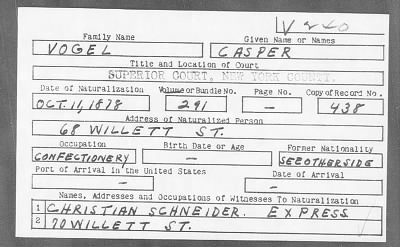 V240
Family Name Given Name or Names
VOGEL CASPER
Title and Location of Court
SUPERIOR COURT, NEW YORK COUNTY.
Date of Naturalization Volume or Bundle No. Page No. Copy of Record No.
OCT. 11, 1878 291 — 438
Address of Naturalized Person
68 WILLETT ST.
Occupation Birth Date or Age Former Nationality
CONFECTIONERY — SEE OTHER SIDE
Port of Arrival in the United States Date of Arrival
— —
Names, Addresses and Occupations of Witnesses To Naturalization
1 CHRISTIAN SCHNEIDER. EXPRESS
2 70 WILLETT ST.